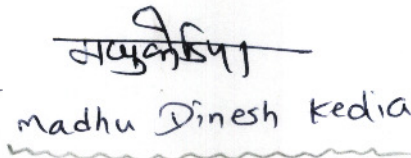 मधुकेडिया
madhu Dinesh Kedia